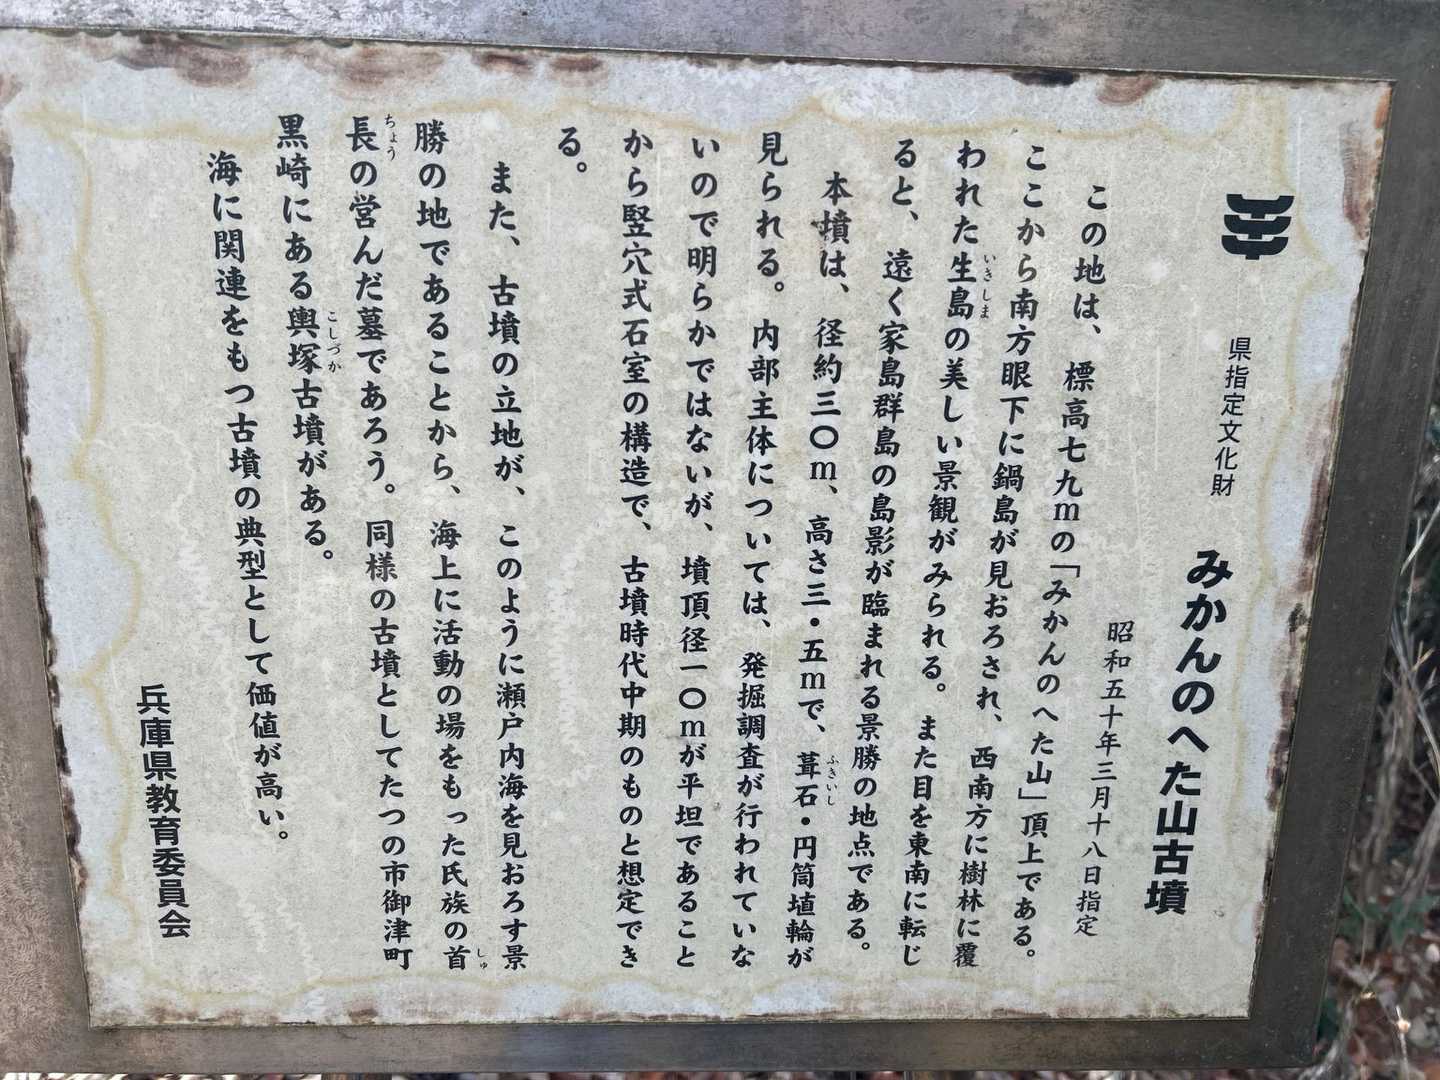 県指定文化財
みかんのへた山古墳
昭和五十年三月十八日指定
この地は、標高七九mの「みかんのへた山」頂上である。
ここから南方眼下に鍋島が見おろされ、西南方に樹林に覆
われた生島の美しい景観がみられる。また目を東南に転じ
いきしま
ると、遠く家島群島の島影が臨まれる景勝の地点である。
本墳は、径約三〇m、高さ三・五mで、葺石・円筒埴輪が
ふきいし
見られる。内部主体については、発掘調査が行われていな
いので明らかではないが、墳頂径一〇mが平坦であること
から竪穴式石室の構造で、古墳時代中期のものと想定でき
る。
また、古墳の立地が、このように瀬戸内海を見おろす景
勝の地であることから、海上に活動の場をもった氏族の首
しゅ
長の営んだ墓であろう。同様の古墳としてたつの市御津町
ちょう
黒崎にある輿塚古墳がある。
こしづか
海に関連をもつ古墳の典型として価値が高い。
兵庫県教育委員会